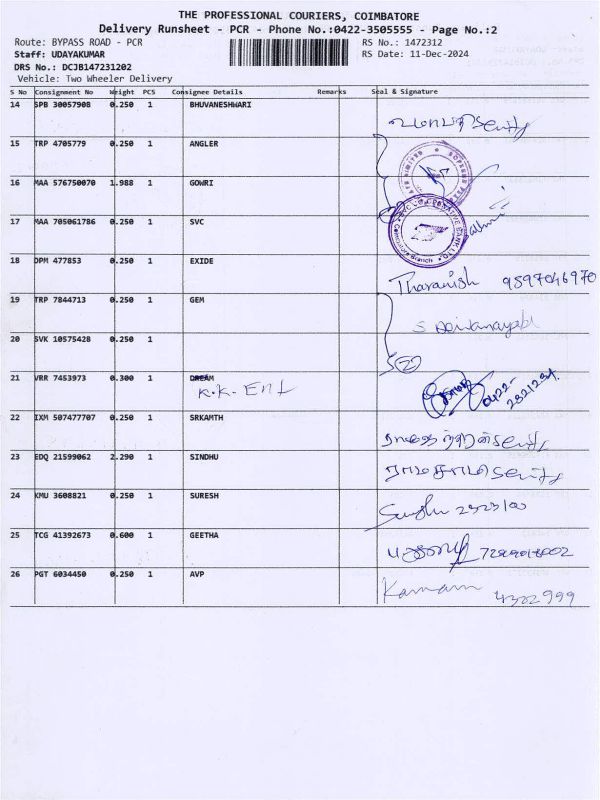 THE PROFESSIONAL COURIERS, COIMBATORE
Delivery Runsheet - PCR - Phone No.:0422-3505555 - Page No.:2
Route: BYPASS ROAD - PCR RS No.: 1472312
Staff: UDAYAKUMAR RS Date: 11-Dec-2024
DRS No.: DCJB147231202
Vehicle: Two Wheeler Delivery
S No Consignment No Weight PCS Consignee Details Remarks Seal & Signature
14 SPB 30057908 0.250 1 BHUVANESHWARI
15 TRP 4705779 0.250 1 ANGLER
16 MAA 576750070 1.988 1 GOWRI
17 MAA 705061786 0.250 1 SVC
18 DPM 477853 0.250 1 EXIDE Tharanish 9597046970
19 TRP 7844713 0.250 1 GEM
20 SVK 10575428 0.250 1
21 VRR 7453973 0.300 1 DREAM
K.K. Ent
22 IXM 507477707 0.250 1 SRKAMTH
23 EDQ 21599062 2.290 1 SINDHU
24 KMU 3608821 0.250 1 SURESH
25 TCG 41392673 0.600 1 GEETHA
26 PGT 6034450 0.250 1 AVP